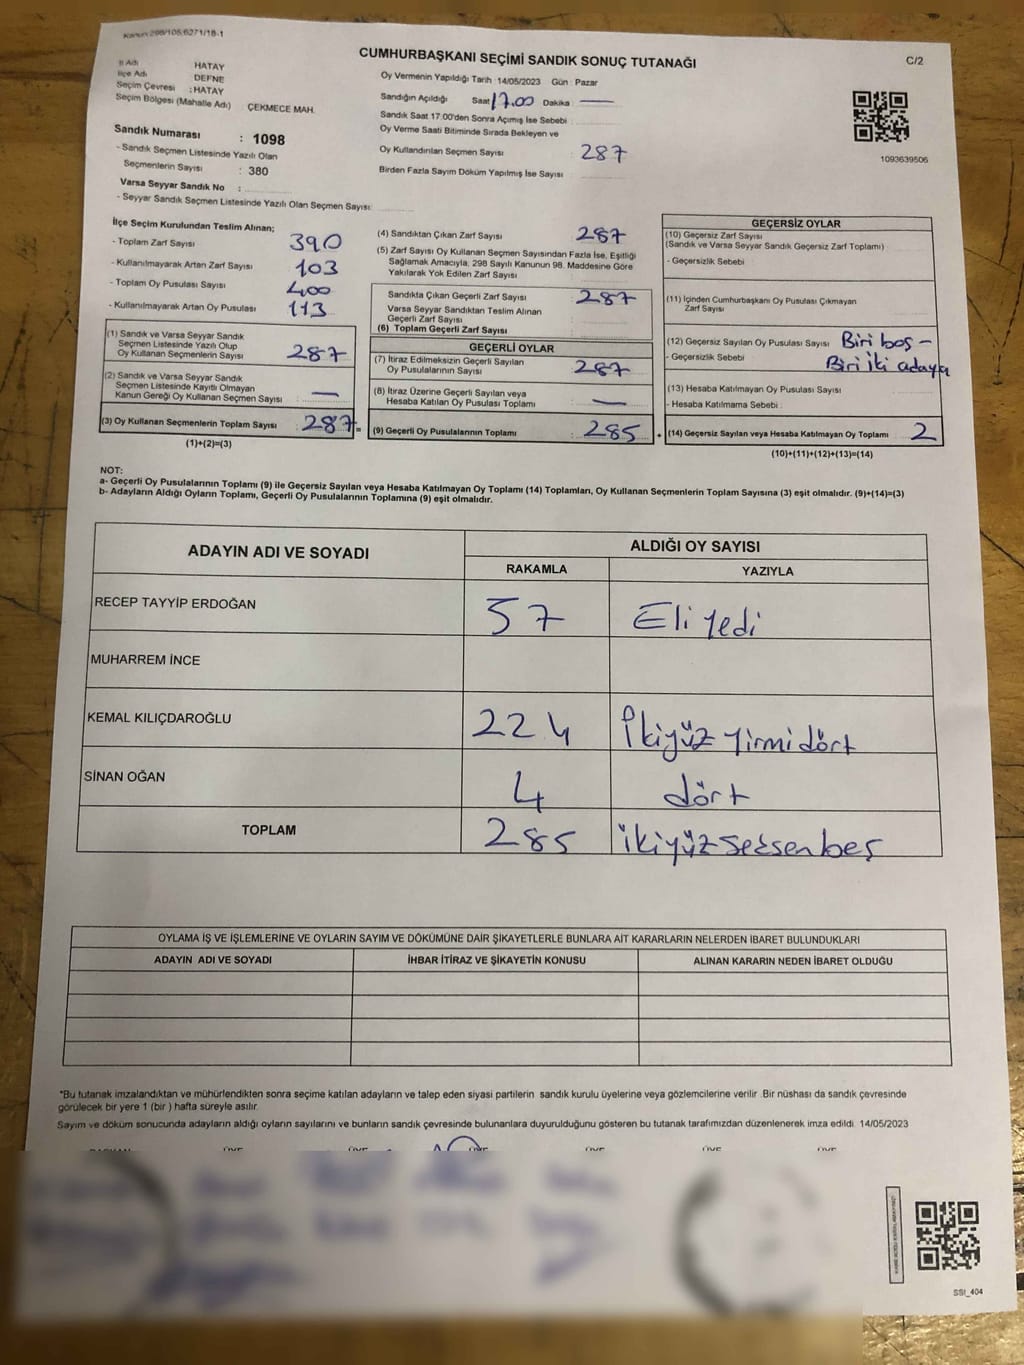 Kanun:298/105,6271/18-1
CUMHURBAŞKANI SEÇİMİ SANDIK SONUÇ TUTANAĞI
C/2
İl Adı HATAY
İlçe Adı DEFNE
Seçim Çevresi : HATAY
Seçim Bölgesi (Mahalle Adı) : ÇEKMECE MAH.
Sandık Numarası : 1098
- Sandık Seçmen Listesinde Yazılı Olan
Seçmenlerin Sayısı : 380
Varsa Seyyar Sandık No :
- Seyyar Sandık Seçmen Listesinde Yazılı Olan Seçmen Sayısı:
Oy Vermenin Yapıldığı Tarih :14/05/2023 Gün : Pazar
Sandığın Açıldığı Saat 17.00 Dakika : —
Sandık Saat 17:00'den Sonra Açımış İse Sebebi :
Oy Verme Saati Bitiminde Sırada Bekleyen ve
Oy Kullandırılan Seçmen Sayısı : 287
Birden Fazla Sayım Döküm Yapılmış İse Sayısı
1093639506
İlçe Seçim Kurulundan Teslim Alınan;
- Toplam Zarf Sayısı 390
- Kullanılmayarak Artan Zarf Sayısı 103
- Toplam Oy Pusulası Sayısı 400
- Kullanılmayarak Artan Oy Pusulası 113
(1) Sandık ve Varsa Seyyar Sandık
Seçmen Listesinde Yazılı Olup
Oy Kullanan Seçmenlerin Sayısı : 287
(2) Sandık ve Varsa Seyyar Sandık
Seçmen Listesinde Kayıtlı Olmayan
Kanun Gereği Oy Kullanan Seçmen Sayısı : —
(3) Oy Kullanan Seçmenlerin Toplam Sayısı : 287 =
(1)+(2)=(3)
(4) Sandıktan Çıkan Zarf Sayısı : 287
(5) Zarf Sayısı Oy Kullanan Seçmen Sayısından Fazla İse, Eşitliği
Sağlamak Amacıyla, 298 Sayılı Kanunun 98. Maddesine Göre
Yakılarak Yok Edilen Zarf Sayısı
Sandıkta Çıkan Geçerli Zarf Sayısı : 287
Varsa Seyyar Sandıktan Teslim Alınan
Geçerli Zarf Sayısı
(6) Toplam Geçerli Zarf Sayısı :
GEÇERLİ OYLAR
(7) İtiraz Edilmeksizin Geçerli Sayılan
Oy Pusulalarının Sayısı : 287
(8) İtiraz Üzerine Geçerli Sayılan veya
Hesaba Katılan Oy Pusulası Toplamı : —
(9) Geçerli Oy Pusulalarının Toplamı : 285 +
GEÇERSİZ OYLAR
(10) Geçersiz Zarf Sayısı
(Sandık ve Varsa Seyyar Sandık Geçersiz Zarf Toplamı)
- Geçersizlik Sebebi :
(11) İçinden Cumhurbaşkanı Oy Pusulası Çıkmayan
Zarf Sayısı
(12) Geçersiz Sayılan Oy Pusulası Sayısı : Biri boş -
- Geçersizlik Sebebi Biri iki adaya
(13) Hesaba Katılmayan Oy Pusulası Sayısı :
- Hesaba Katılmama Sebebi :
(14) Geçersiz Sayılan veya Hesaba Katılmayan Oy Toplamı : 2
(10)+(11)+(12)+(13)=(14)
NOT:
a- Geçerli Oy Pusulalarının Toplamı (9) ile Geçersiz Sayılan veya Hesaba Katılmayan Oy Toplamı (14) Toplamları, Oy Kullanan Seçmenlerin Toplam Sayısına (3) eşit olmalıdır. (9)+(14)=(3)
b- Adayların Aldığı Oyların Toplamı, Geçerli Oy Pusulalarının Toplamına (9) eşit olmalıdır.
ADAYIN ADI VE SOYADI ALDIĞI OY SAYISI
RAKAMLA YAZIYLA
RECEP TAYYİP ERDOĞAN 57 Eli yedi
MUHARREM İNCE
KEMAL KILIÇDAROĞLU 224 İkiyüz yirmi dört
SİNAN OĞAN 4 dört
TOPLAM 285 ikiyüz seksen beş
OYLAMA İŞ VE İŞLEMLERİNE VE OYLARIN SAYIM VE DÖKÜMÜNE DAİR ŞİKAYETLERLE BUNLARA AİT KARARLARIN NELERDEN İBARET BULUNDUKLARI
ADAYIN ADI VE SOYADI İHBAR İTİRAZ VE ŞİKAYETİN KONUSU ALINAN KARARIN NEDEN İBARET OLDUĞU
*Bu tutanak imzalandıktan ve mühürlendikten sonra seçime katılan adayların ve talep eden siyasi partilerin sandık kurulu üyelerine veya gözlemcilerine verilir .Bir nüshası da sandık çevresinde
görülecek bir yere 1 (bir ) hafta süreyle asılır.
Sayım ve döküm sonucunda adayların aldığı oyların sayılarını ve bunların sandık çevresinde bulunanlara duyurulduğunu gösteren bu tutanak tarafımızdan düzenlenerek imza edildi. 14/05/2023
SSI_404